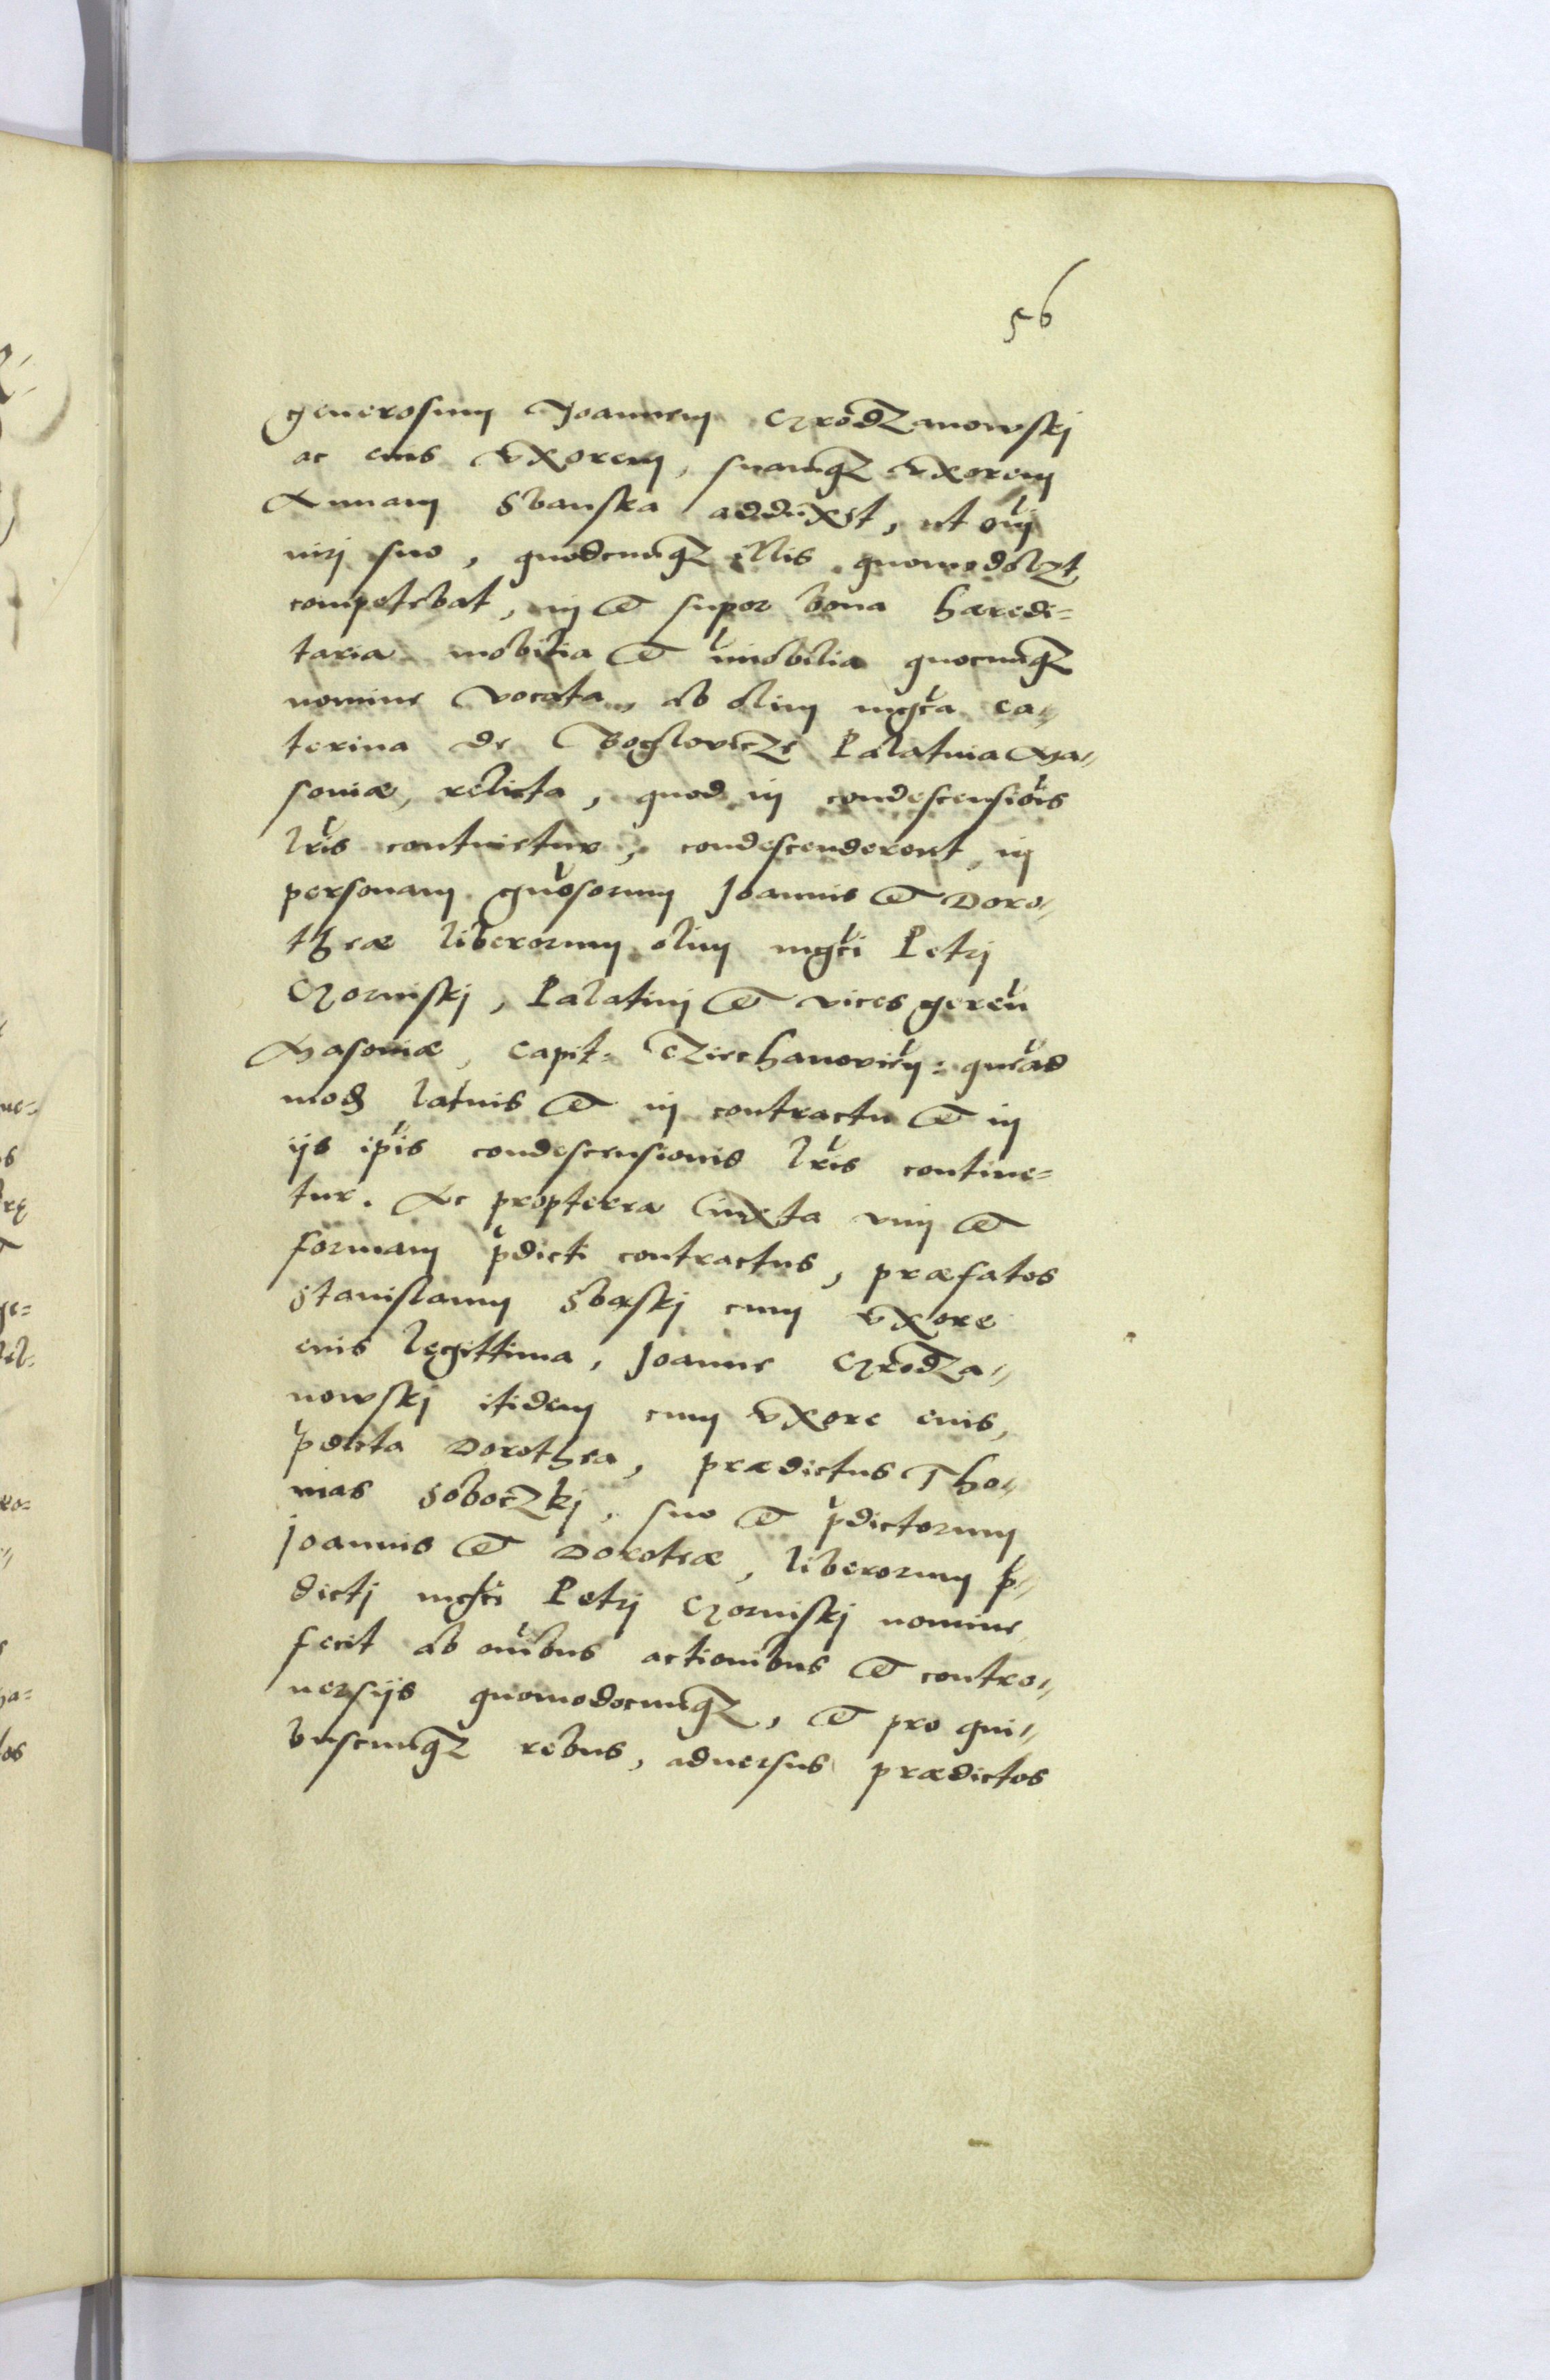 56
generosum Joannem Grodzanowskj
ac eius vxorem, suamqz vxorem
Annam Sbanska adduxit, ut oi̅
iurj suo, quodcunqz illis quomodolzt
competebat, in et super bona hæredi=
taria mobilia et im̅obilia quocunqz
nomine vocata, ab olim mgc̅a Ca,,
terina de Boglovicze Palatina Ma,,
soviæ, relicta, quod in condescensio̅is
lr̅is continetur, condescenderent in
personam gn̅osorum Joannis et Doro,,
theæ liberorum olim mgc̅i Petrj
Gorinskj, Palatinj et vices geren̅
Masoviæ, Capit: Cziechanovien̅: que̅ad
mod latius et in contractu et in
ijs ip̅is condescensionis lr̅is contine=
tur. Ac propterea iuxta vim et
formam p̅dicti contractus, præfatos
Stanislaum Sbaskj cum vxore
eius legittima, Joanne Grodza,,
nowskj itidem cum vxore eius,
p̅dicta Dorothea, prædictus Tho,,
mas Soboczkj, suo et p̅dictorum
Joannis et Doroteæ, liberorum p̅,,
dictj mgc̅i Petrj Gorinskj nomine,
fecit ab om̅ibus actionibus et contro,,
uersijs quomodocunqz, et pro qui,,
buscunqz rebus, aduersus prædictos